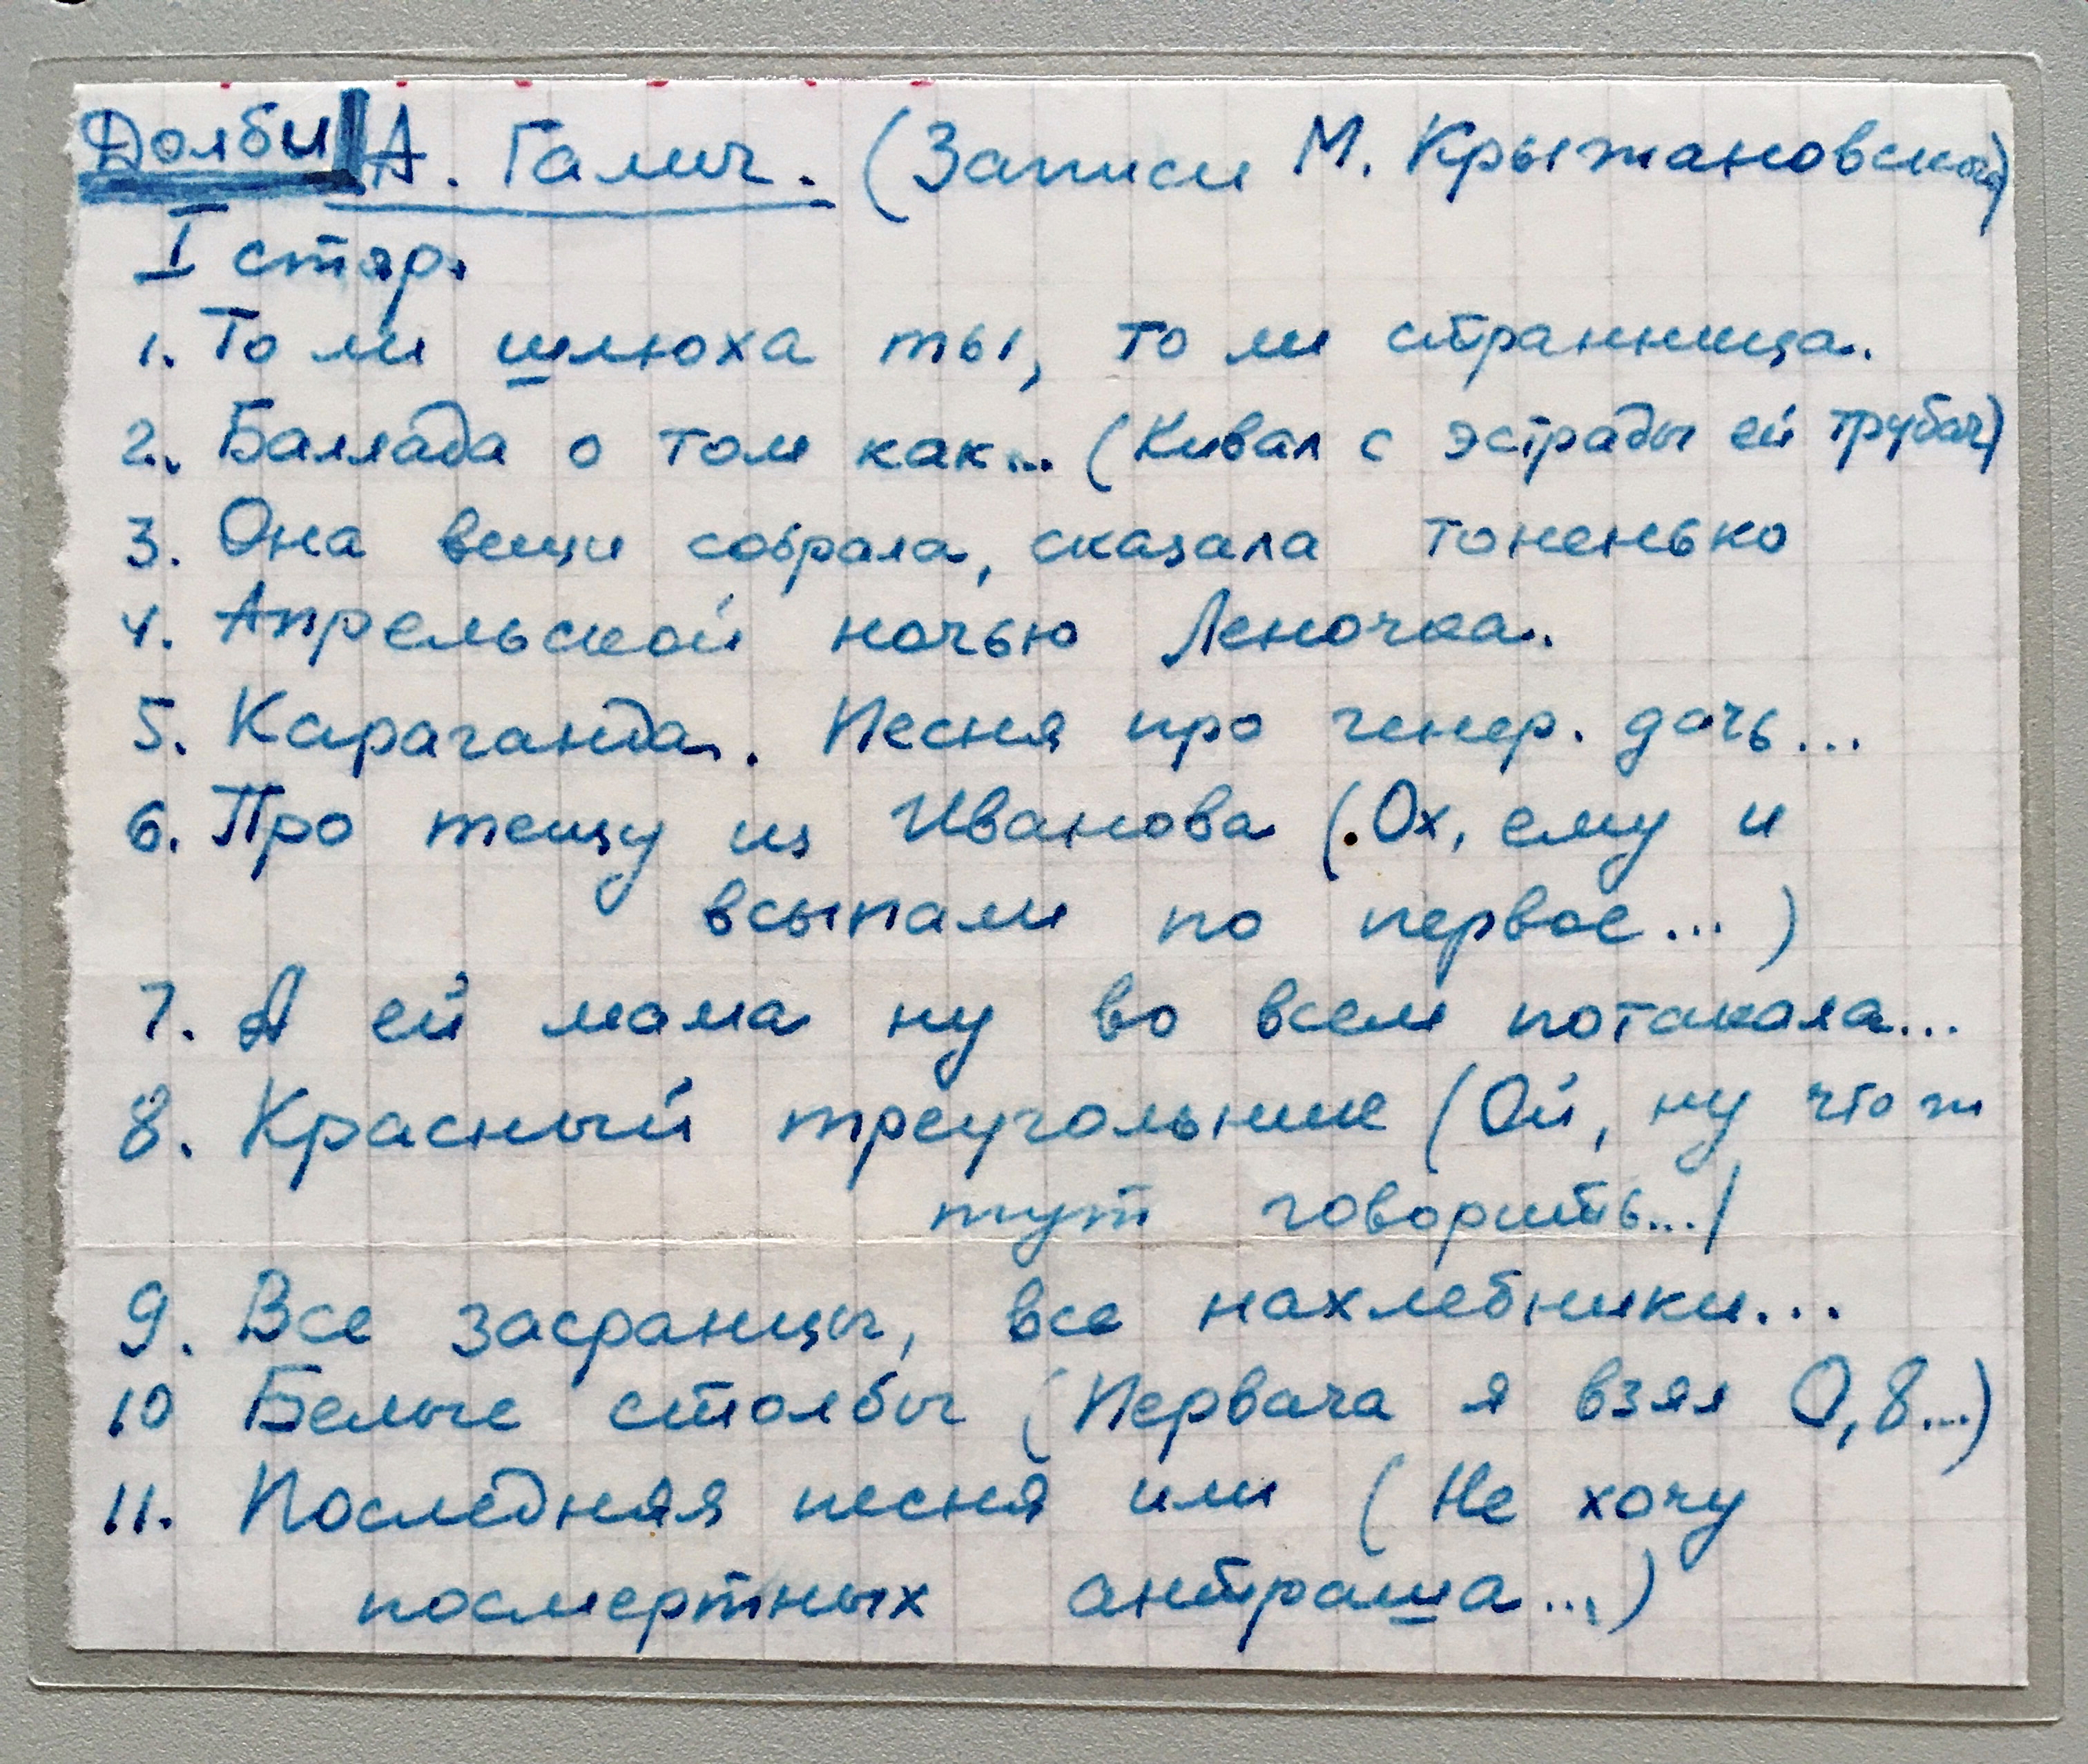 Долби А. Галич. (Записи М. Крыжановского)
I стор.
1. То ли шлюха ты, то ли странница.
2. Баллада о том как... (Кивал с эстрады ей трубач)
3. Она вещи собрала, сказала тоненько
4. Апрельской ночью Леночка.
5. Караганда. Песня про генер. дочь...
6. Про тещу из Иванова (Ох, ему и
всыпали по первое...)
7. А ей мама ну во всем потакала...
8. Красный треугольник (Ой, ну что ж
тут говорить...)
9. Все засранцы, все нахлебники...
10 Белые столбы (Первача я взял 0,8...)
11. Последняя песня или (Не хочу
посмертных антраша...)